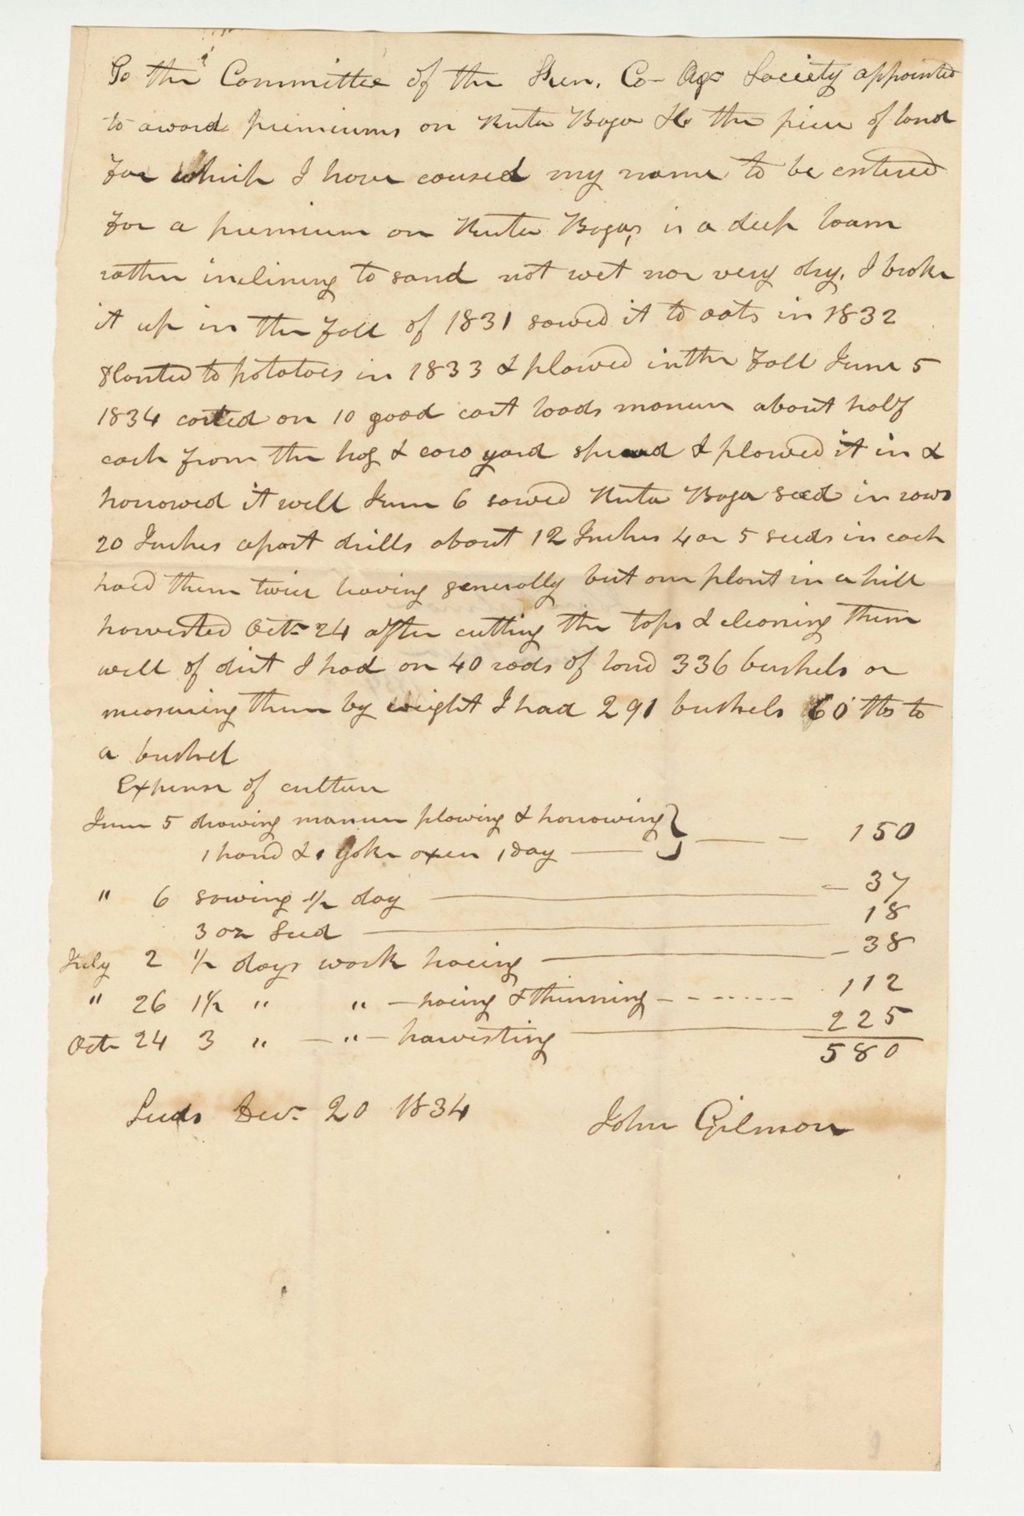 To the Committee of the Ken. Co- Agr Society appointed
to award premiums on Ruta Baga &c the piece of land
for which I have caused my name to be entered
for a premium on Ruta Bagas is a deep loam
rather inclining to sand not wet nor very dry. I broke
it up in the Fall of 1831 sowed it to oats in 1832
Planted to potatoes in 1833 & plowed in the Fall June 5
1834 carted on 10 good cart loads manure about half
each from the hog & cow yard spread & plowed it in &
harrowed it well June 6 sowed Ruta Baga seed in rows
20 Inches apart drills about 12 Inches 4 or 5 seeds in each
hoed them twice leaving generally but one plant in a hill
harvested Octr 24 after cutting the tops & cleaning them
well of dirt I had on 40 rods of land 336 bushels or
measuring them by weight I had 291 bushels 60 lbs to
a bushel
Expense of culture
June 5 drawing manure plowing & harrowing
1 hand & 1 yoke oxen 1 day — — 150
" 6 sowing 1/2 day — 37
3 oz Seed — 18
July 2 1/2 days work hoeing — 38
" 26 1 1/2 " " — hoeing & thinning - - - - 112
Oct 24 3 " — " — harvesting — 225
580
Leeds Decr 20 1834 John Gilmore